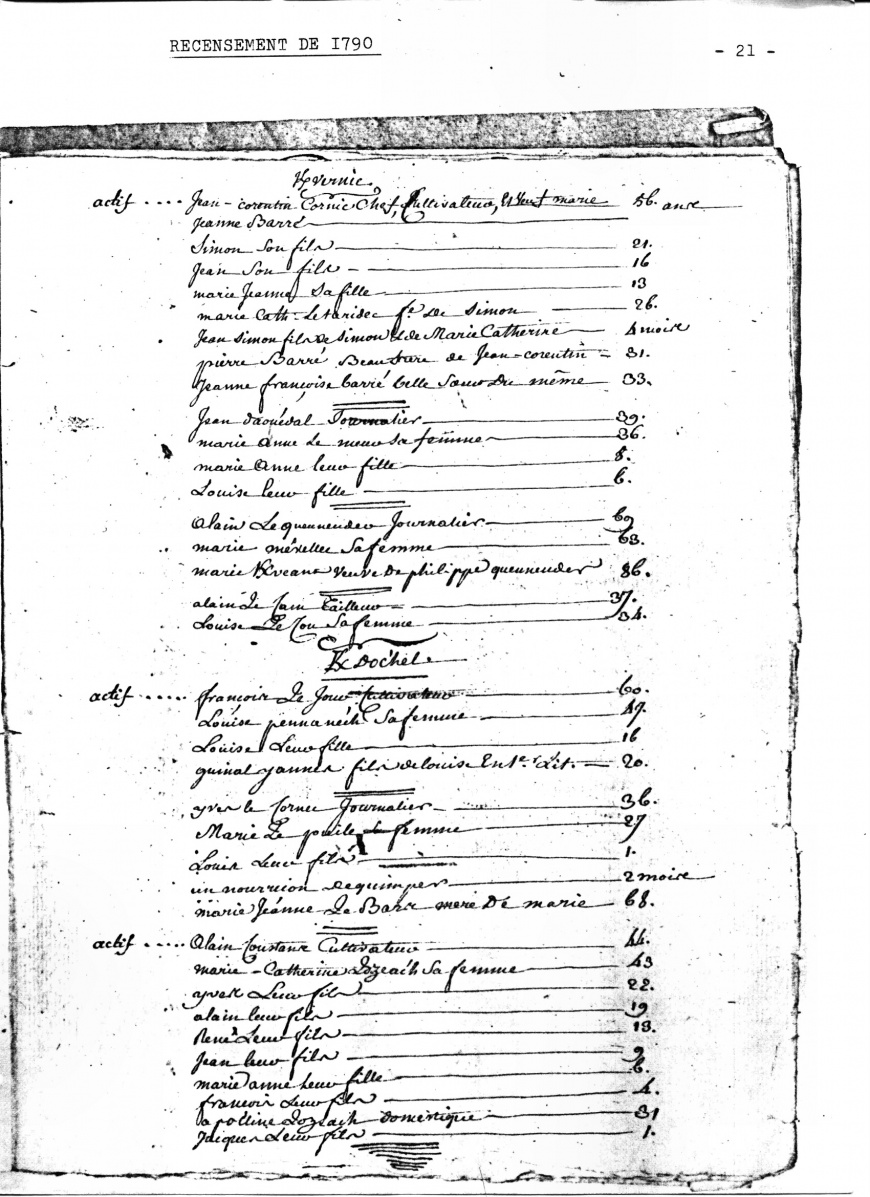 RECENSEMENT DE 1790
- 21 -
Kvernic
actif .... Jean-corentin Cornic Chef, Cultivateur, Et Veuf marie 56. ans
Jeanne Barré
Simon Son fils 21.
Jean Son fils 16
marie Jeanne Sa fille 13
marie Cath. Letaridec fe. de Simon 26.
Jean Simon fils de Simon & de Marie Catherine 4 mois
pierre Barré Beau frere de Jean-corentin 31.
Jeanne françoise barré belle Sœur Du même 33.
Jean daouédal Journalier 39.
marie anne Le meur sa femme 36.
marie anne leur fille 8.
Louise leur fille 6.
alain Le queuneudeu Journalier 69
marie mérellec Sa femme 63.
marie veuve De philippe queuneudeu 86.
alain Le Tailleur 37.
Louise Le Sa femme 34.
K Dochel
actif ..... françois Le Jour Cultivateur 60.
Louise pennanéch Sa femme 49.
Louise Leur fille 16
guinal yannes fils de louise En 1er. Lit. 20.
yves le Cornec Journalier 36.
Marie Le femme 27
Louis Leur fils 1.
un nourricon de quimper 2 mois
marie Jéanne Le Barr mere De marie 68.
actif ..... Alain Coustans Cultivateur 44.
marie-Catherine Lozeach Sa femme 43
yves Leur fils 22.
alain leur fils 19
René Leur fils 13.
Jean leur fils 9
marie anne Leur fille 6.
francois Leur fils 4.
apolline Lozeach domestique 31
Jacques Leur fils 1.